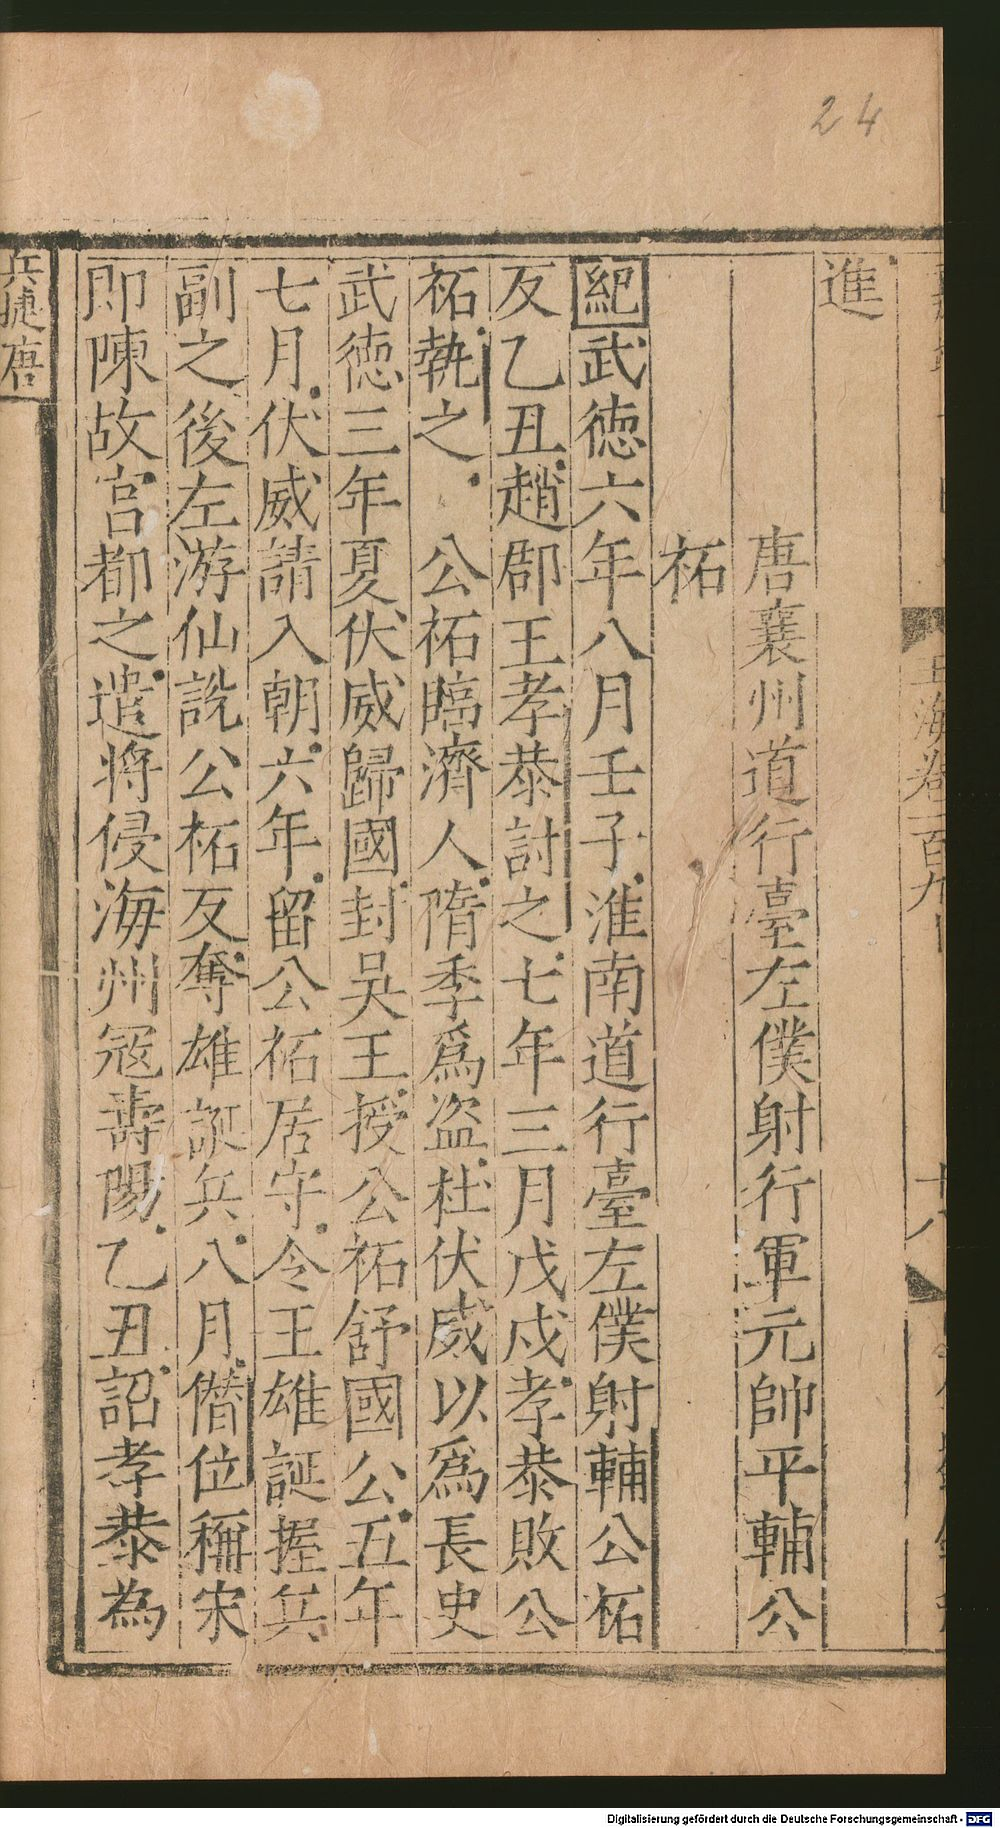 24
玉海卷一百九
十八
進
唐襄州道行臺左僕射行軍元帥平輔公
祏
紀武徳六年八月壬子淮南道行臺左僕射輔公祏
反乙丑趙郡王孝恭討之七年三月戊戌孝恭敗公
祏執之 公祏臨濟人隋季為盗杜伏威以為長史
武徳三年夏伏威歸國封吳王授公祏舒國公五年
七月伏威請入朝六年留公祏居守令王雄誕握兵
副之後左游仙説公祏反奪雄誕兵八月僭位稱宋
即陳故宮都之遣將侵海州冦壽陽乙丑詔孝恭為
兵捷唐
Digitalisierung gefördert durch die Deutsche Forschungsgemeinschaft - DFG